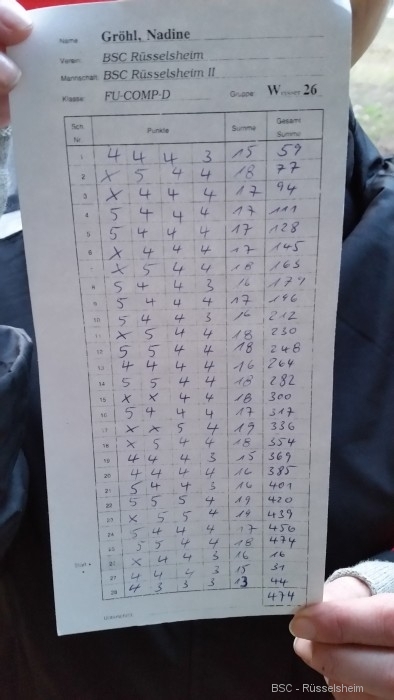 Name Gröhl, Nadine
Verein: BSC Rüsselsheim
Mannschaft: BSC Rüsselsheim II
Klasse: FU-COMP-D Gruppe: W 26
Sch. Nr. Punkte Summe Gesamt Summe
1 4 4 4 3 15 59
2 X 5 4 4 18 77
3 X 4 4 4 17 94
4 5 4 4 4 17 111
5 5 4 4 4 17 128
6 X 4 4 4 17 145
7 X 5 4 4 18 163
8 5 4 4 3 16 179
9 5 4 4 4 17 196
10 5 4 4 3 16 212
11 X 5 4 4 18 230
12 5 5 4 4 18 248
13 4 4 4 4 16 264
14 5 5 4 4 18 282
15 X X 4 4 18 300
16 5 4 4 4 17 317
17 X X 5 4 19 336
18 X 5 4 4 18 354
19 4 4 4 3 15 369
20 4 4 4 4 16 385
21 5 4 4 3 16 401
22 5 5 5 4 19 420
23 X 5 5 4 19 439
24 5 4 4 4 17 456
25 5 5 4 4 18 474
26 X 4 4 3 16 16
27 4 4 4 3 15 31
28 4 3 3 3 13 44
474
BSC - Rüsselsheim